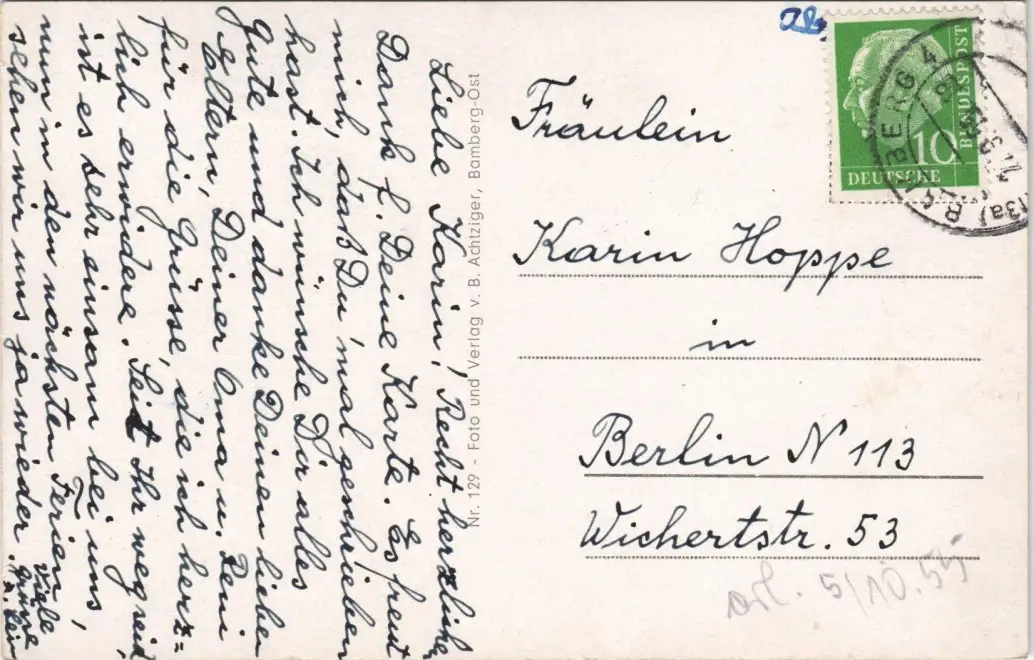 Liebe Karin! Recht herzlichen
Dank f. Deine Karte. Es freut
mich, daß Du mal geschrieben
hast. Ich wünsche Dir alles
gute und danke Deinen lieben
Eltern, Deiner Oma u. Reni
für die Grüsse, die ich herz=
lich erwidere. Seit Ihr weg seid,
ist es sehr einsam bei uns,
nun in den nächsten Ferien
sehen wir uns ja wieder.
Viele
Grüsse
Nr. 129 - Foto und Verlag v. B. Achtziger, Bamberg-Ost
10
DEUTSCHE
BUNDESPOST
(13a) BAMBERG 4
Fräulein
Karin Hoppe
in
Berlin N 113
Wichertstr. 53
5/10.55